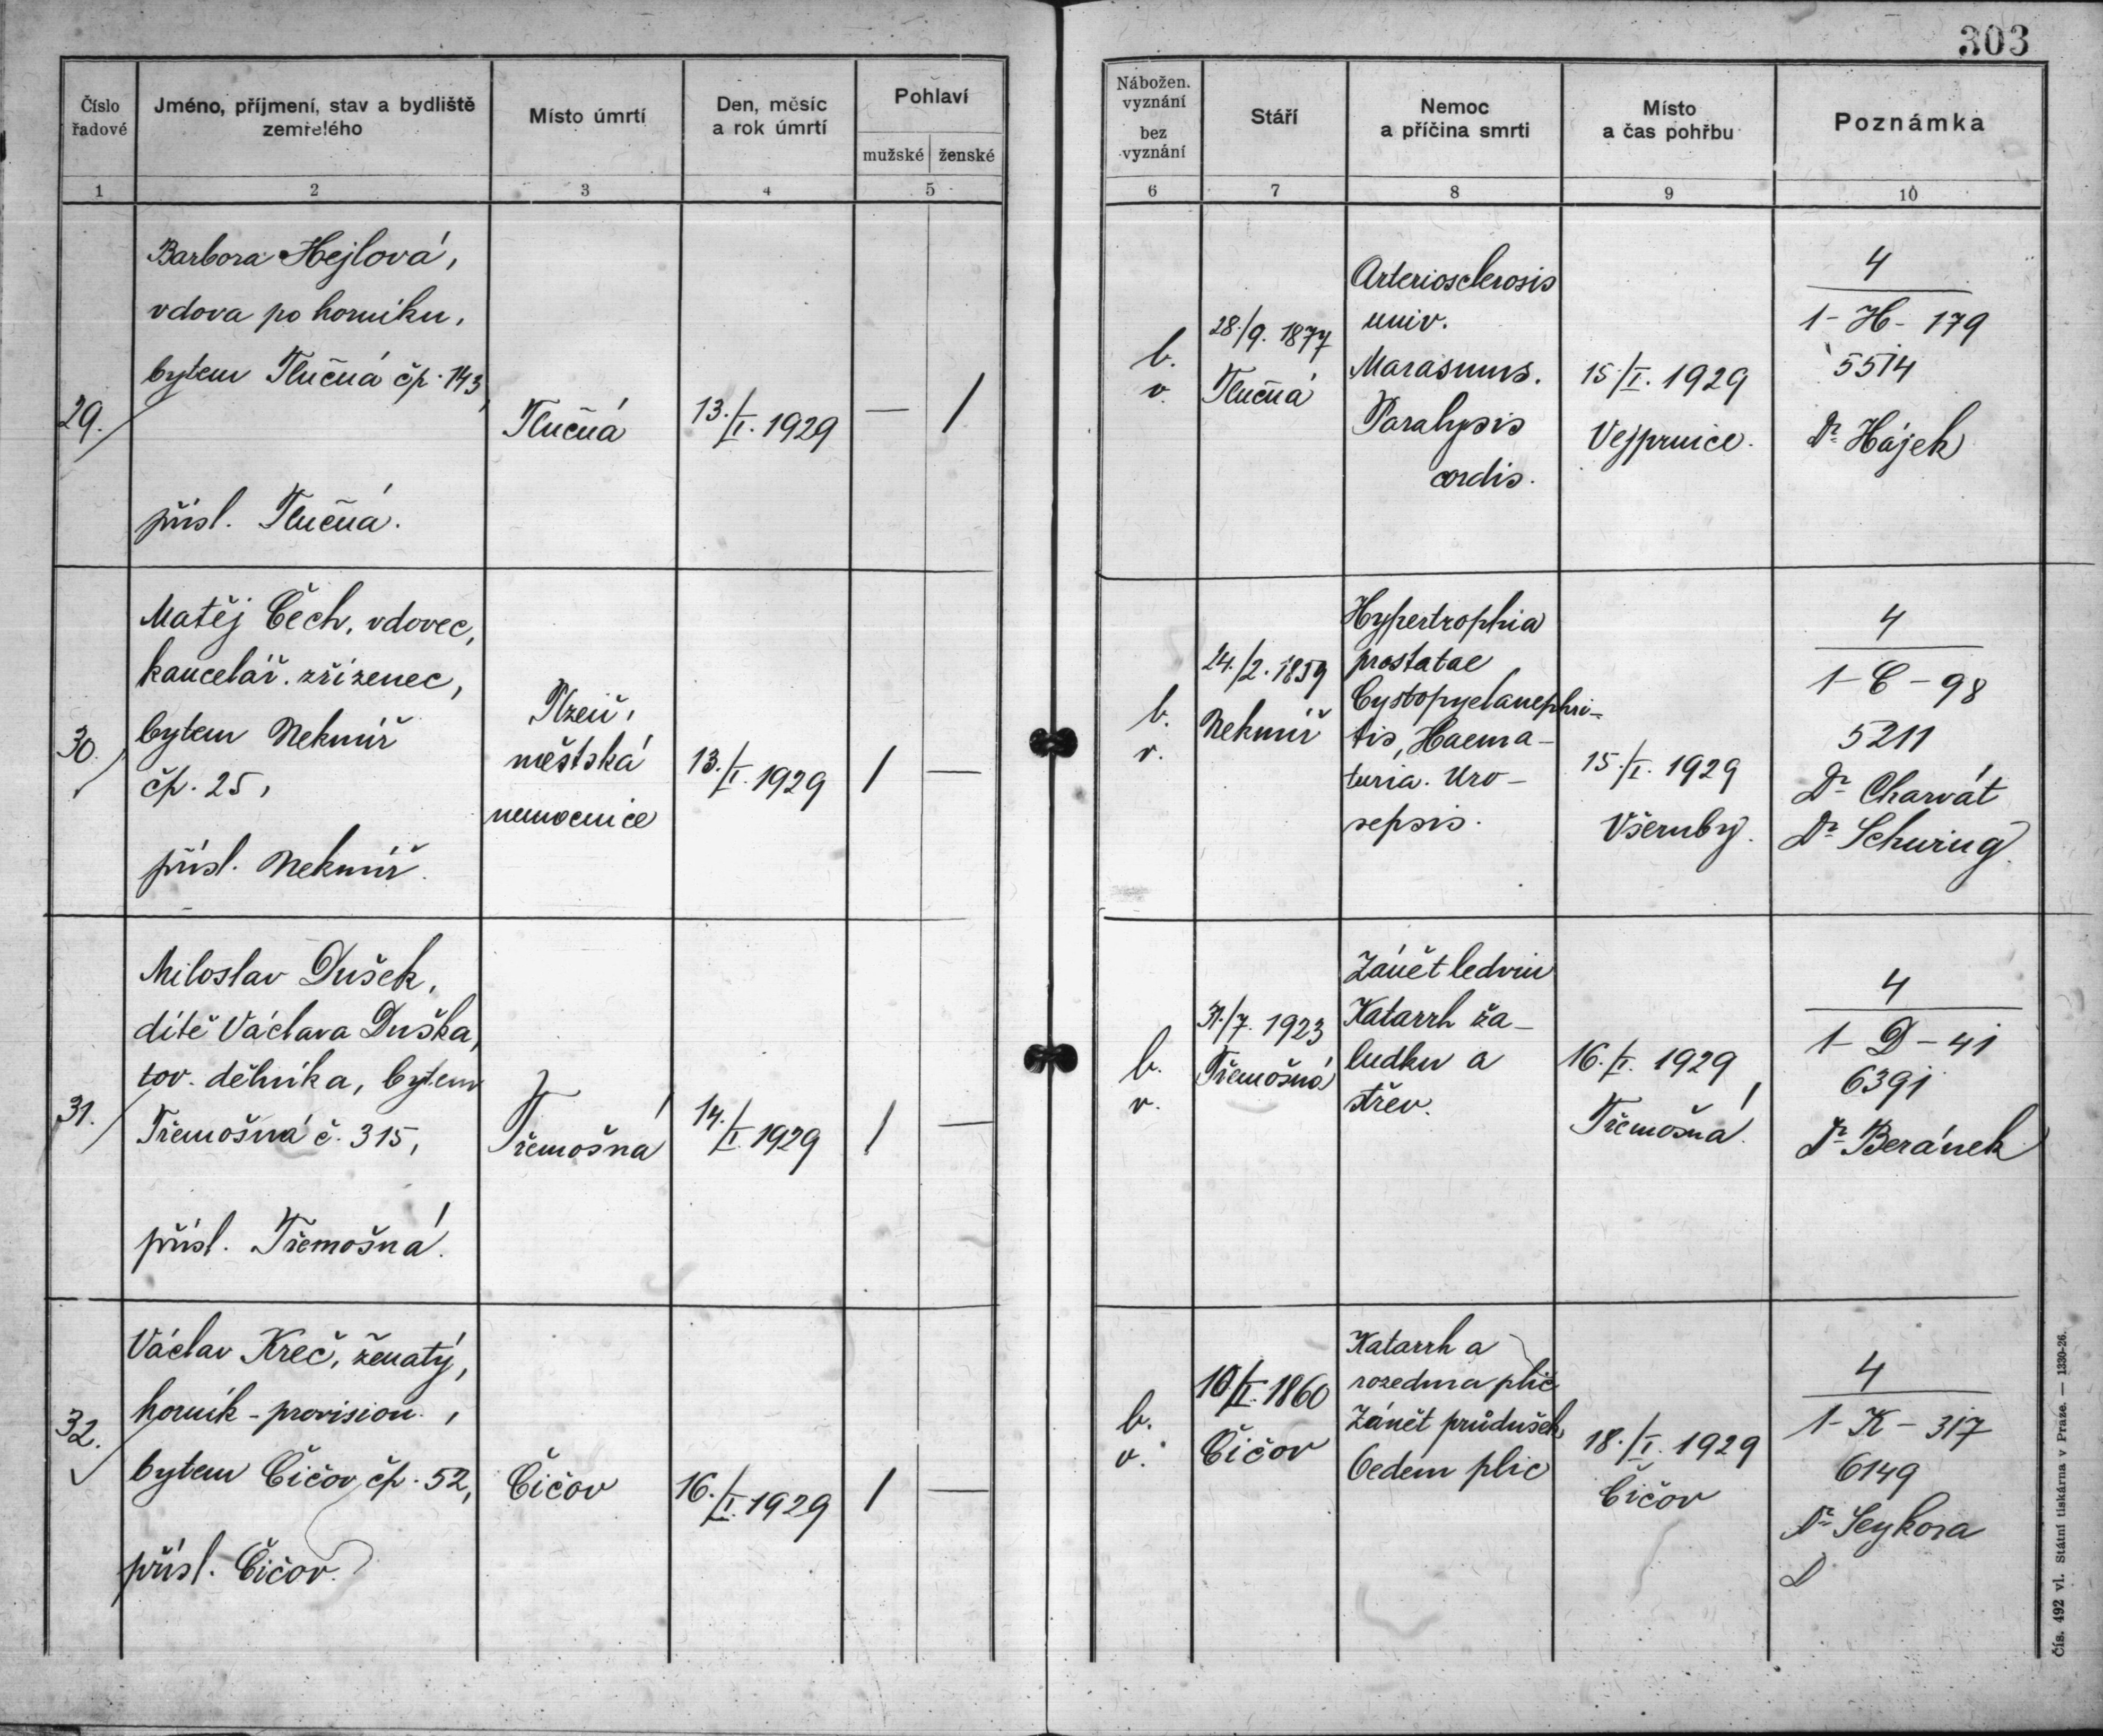 303
Číslo
řadové
Jméno, příjmení, stav a bydliště
zemřelého
Místo úmrtí
Den, měsíc
a rok úmrtí
Pohlaví
mužské ženské
1 2 3 4 5
Nábožen.
vyznání
bez
vyznání
Stáří
Nemoc
a příčina smrti
Místo
a čas pohřbu
Poznámka
6 7 8 9 10
29.
Barbora Hejlová,
vdova po horníku,
bytem Tlučná čp. 143,
přísl. Tlučná.
Tlučná
13./I. 1929
— /
b.
v.
28./9. 1877
Tlučná
Arteriosclerosis
univ.
Marasmus.
Paralysis
cordis.
15./I. 1929
Vejprnice.
4
1 - H - 179
5514
Dr Hájek
30.
Matěj Čech, vdovec,
kancelář. zřízenec,
bytem Nekmíř
čp. 25,
přísl. Nekmíř.
Plzeň,
městská
nemocnice
13./I. 1929
/ —
b.
v.
24./2. 1859
Nekmíř
Hypertrophia
prostatae
Cystopyelanephri-
tis, Haema-
turia. Uro-
sepsis.
15./I. 1929
Všeruby.
4
1 - C - 98
5211
Dr Charvát
Dr Schwing.
31.
Miloslav Dušek,
dítě Václava Duška,
tov. dělníka, bytem
Třemošná č. 315,
přísl. Třemošná.
Třemošná
14./I. 1929
/ —
b.
v.
31./7. 1923
Třemošná
Zánět ledvin
Katarrh ža-
ludku a
střev.
16./I. 1929
Třemošná.
4
1 - D - 41
6391
Dr Beránek
32.
Václav Kreč, ženatý,
horník - provision.,
bytem Čičov čp. 52,
přísl. Čičov.
Čičov
16./I. 1929
/ —
b.
v.
10/II. 1860
Čičov
Katarrh a
rozedma plic
Zánět průdušek,
Oedem plic
18./I. 1929
Čičov
4
1 - K - 317
6149
Dr Seykora
D
Čís. 492 vl. Státní tiskárna v Praze. — 1330-26.